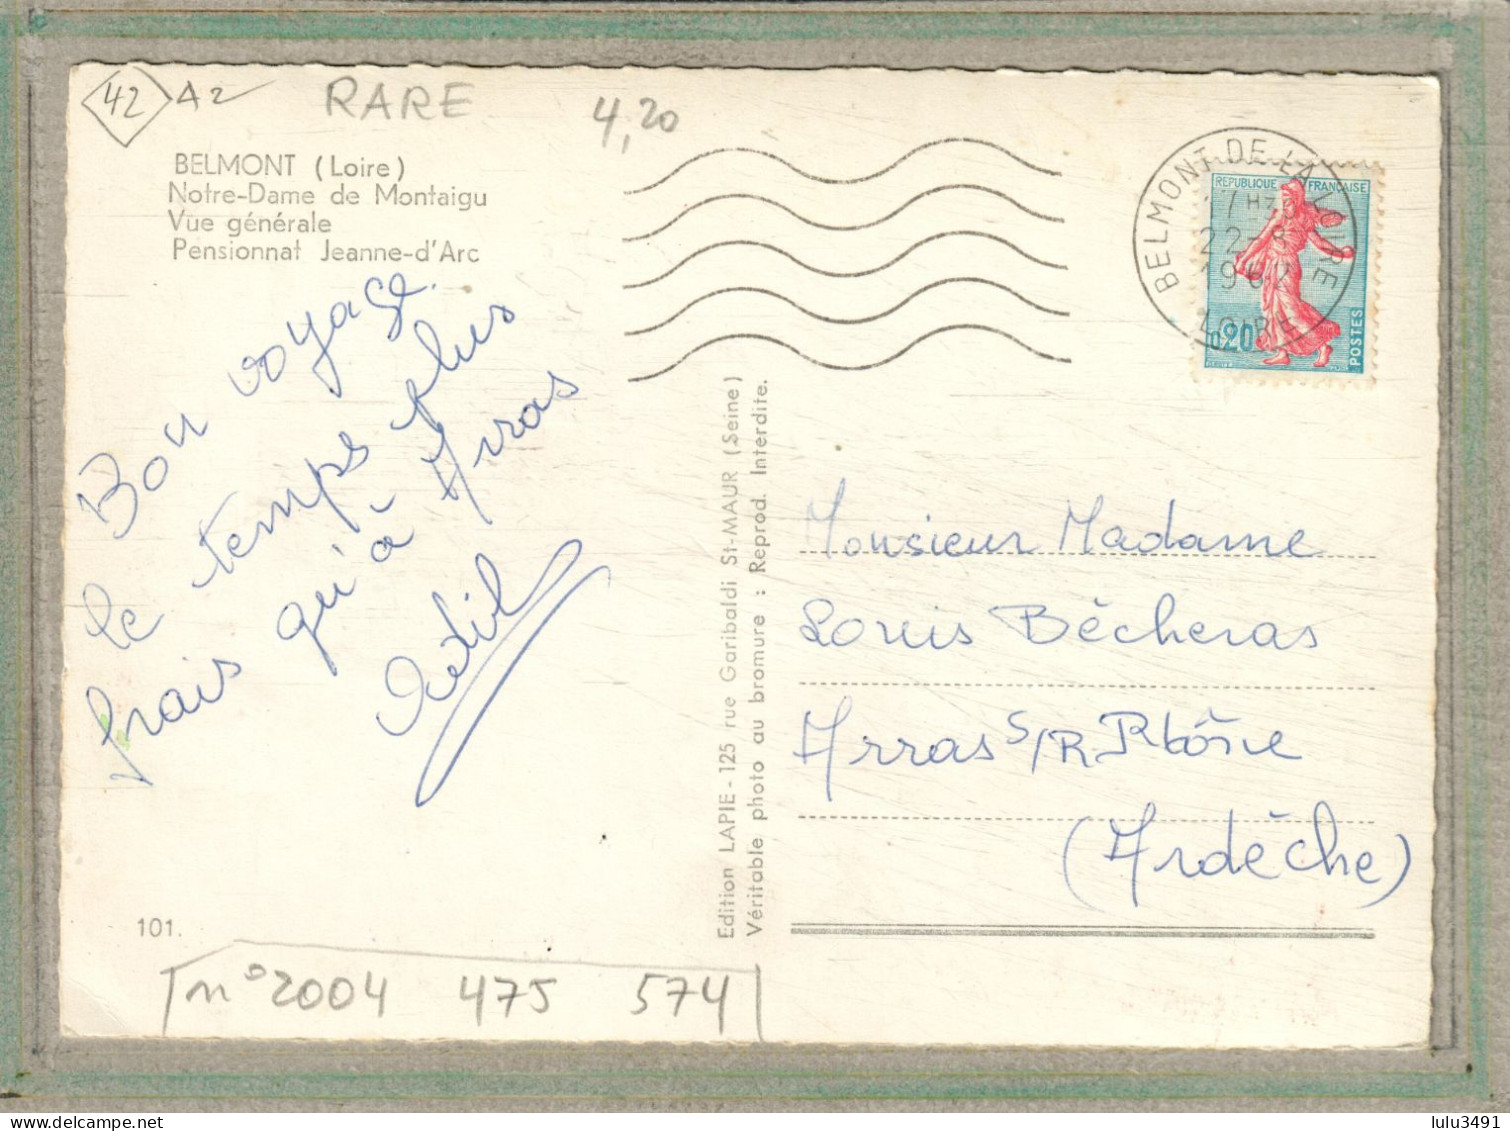 42 A2
RARE
4,20
BELMONT (Loire)
Notre-Dame de Montaigu
Vue générale
Pensionnat Jeanne-d'Arc
Bon voyage.
le temps plus
frais qu'à Arras
BELMONT DE LA LOIRE
22-8
1962
LOIRE
REPUBLIQUE FRANÇAISE
0,20
POSTES
Edition LAPIE - 125 rue Garibaldi St-MAUR (Seine)
Véritable photo au bromure : Reprod. Interdite.
Monsieur Madame
Louis Bècheras
Arras S/R Rhône
(Ardèche)
101.
n° 2004 475 574
lulu3491